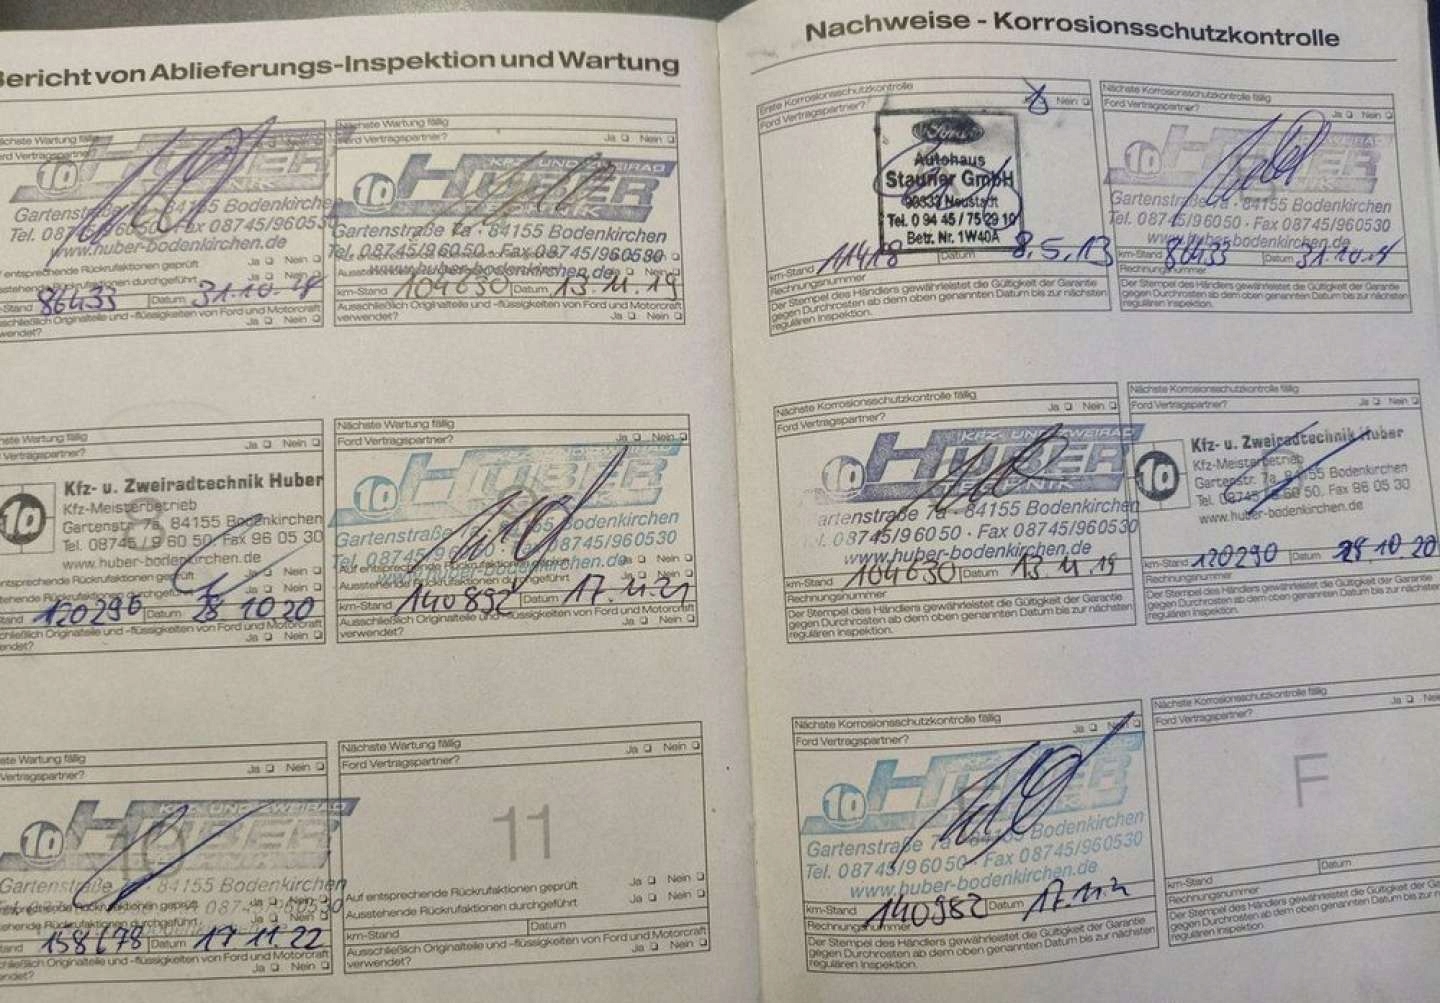 Bericht von Ablieferungs-Inspektion und Wartung
Nächste Wartung fällig
Ford Vertragspartner?
Ja Nein
10 HUBER
Gartenstraße 84155 Bodenkirchen
www.huber-bodenkirchen.de
86433 Datum 31.10.
Ja Nein
Nächste Wartung fällig
Ford Vertragspartner?
Ja Nein
KFZ- UND ZWEIRAD
10 HUBER
Gartenstraße 7a · 84155 Bodenkirchen
Tel. 08745/96050 · Fax 08745/960530
www.huber-bodenkirchen.de
km-Stand 104630 Datum 13.11.19
Ausschließlich Originalteile und -flüssigkeiten von Ford und Motorcraft
verwendet? Ja Nein
Wartung fällig
Vertragspartner?
Ja Nein
10
Kfz- u. Zweiradtechnik Huber
Kfz-Meisterbetrieb
Gartenstr. 7a, 84155 Bodenkirchen
Tel. 08745 / 9 60 50, Fax 96 05 30
www.huber-bodenkirchen.de
Ja Nein
120296 Datum 28 10 20
Originalteile und -flüssigkeiten von Ford und Motorcraft
Ja Nein
Nächste Wartung fällig
Ford Vertragspartner?
Ja Nein
10 HUBER
Gartenstraße 84155 Bodenkirchen
Tel. 08745/96050 Fax 08745/960530
Ausstehende Rückrufaktionen durchgeführt Ja Nein
km-Stand Datum 17.11.21
Ausschließlich Originalteile und -flüssigkeiten von Ford und Motorcraft
verwendet? Ja Nein
Wartung fällig
Vertragspartner?
Ja Nein
KFZ- UND ZWEIRAD
10 HUBER
Gartenstraße 84155 Bodenkirchen
158678 Datum 17 11 22
Originalteile und -flüssigkeiten von Ford und Motorcraft
Ja Nein
Nächste Wartung fällig
Ford Vertragspartner?
Ja Nein
11
Auf entsprechende Rückrufaktionen geprüft Ja Nein
Ausstehende Rückrufaktionen durchgeführt Ja Nein
km-Stand Datum
Ausschließlich Originalteile und -flüssigkeiten von Ford und Motorcraft
verwendet? Ja Nein
Nachweise - Korrosionsschutzkontrolle
Erste Korrosionsschutzkontrolle
Ford Vertragspartner?
Nein
Ford
Autohaus
Stauner GmbH
Neustadt
Tel. 0 94 45 / 75 29 19
Betr. Nr. 1W40A
km-Stand 11418 Datum 8.5.13
Rechnungsnummer
Der Stempel des Händlers gewährleistet die Gültigkeit der Garantie
gegen Durchrosten ab dem oben genannten Datum bis zur nächsten
regulären Inspektion.
Nächste Korrosionsschutzkontrolle fällig
Ford Vertragspartner?
Ja Nein
10 HUBER
Gartenstraße 7a · 84155 Bodenkirchen
Tel. 08745/96050 · Fax 08745/960530
www.huber-bodenkirchen.de
km-Stand 86433 Datum 31.10.
Rechnungsnummer
Der Stempel des Händlers gewährleistet die Gültigkeit der Garantie
gegen Durchrosten ab dem oben genannten Datum bis zur nächsten
regulären Inspektion.
Nächste Korrosionsschutzkontrolle fällig
Ford Vertragspartner?
Ja Nein
KFZ- UND ZWEIRAD
10 HUBER
TECHNIK
artenstraße 7a · 84155 Bodenkirchen
08745/96050 · Fax 08745/960530
www.huber-bodenkirchen.de
km-Stand 104630 Datum 13.11.19
Rechnungsnummer
Der Stempel des Händlers gewährleistet die Gültigkeit der Garantie
gegen Durchrosten ab dem oben genannten Datum bis zur nächsten
regulären Inspektion.
Nächste Korrosionsschutzkontrolle fällig
Ford Vertragspartner?
Ja Nein
10
Kfz- u. Zweiradtechnik Huber
Kfz-Meisterbetrieb
Gartenstr. 7a, 84155 Bodenkirchen
Tel. 08745 / 9 60 50, Fax 96 05 30
www.huber-bodenkirchen.de
km-Stand 120290 Datum 28.10.20
Rechnungsnummer
Der Stempel des Händlers gewährleistet die Gültigkeit der Garantie
gegen Durchrosten ab dem oben genannten Datum bis zur nächsten
regulären Inspektion.
Nächste Korrosionsschutzkontrolle fällig
Ford Vertragspartner?
Ja Nein
10 HUBER
Gartenstraße 7a · 84155 Bodenkirchen
Tel. 08745/96050 · Fax 08745/960530
www.huber-bodenkirchen.de
km-Stand 140982 Datum
Rechnungsnummer
Der Stempel des Händlers gewährleistet die Gültigkeit der Garantie
gegen Durchrosten ab dem oben genannten Datum bis zur nächsten
regulären Inspektion.
Nächste Korrosionsschutzkontrolle fällig
Ford Vertragspartner?
Ja
F
km-Stand Datum
Rechnungsnummer
Der Stempel des Händlers gewährleistet die Gültigkeit der
gegen Durchrosten ab dem oben genannten Datum bis zur
regulären Inspektion.